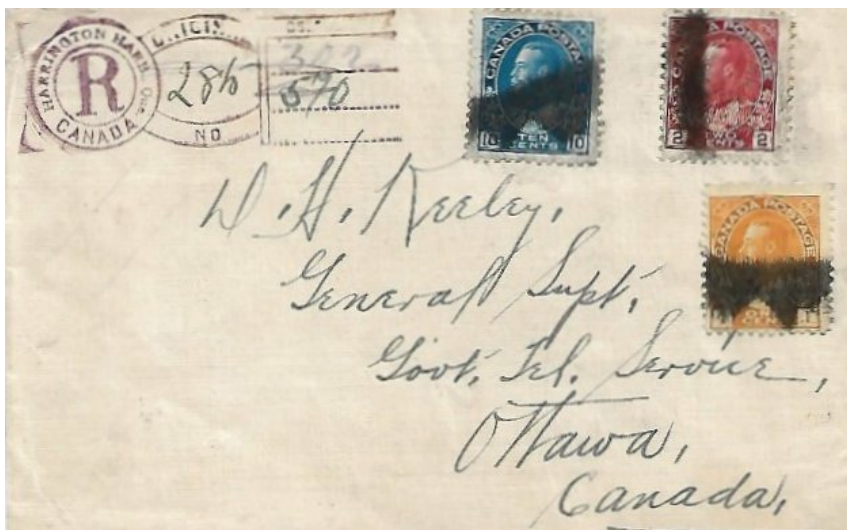 HARRINGTON HARB. Que
R
CANADA
ORIGINAL
285
NO
302
570
CANADA POSTAGE
10 TEN CENTS 10
CANADA POSTAGE
2 TWO CENTS 2
CANADA POSTAGE
1
D. H. Keeley,
General Supt,
Govt. Tel. Service,
Ottawa,
Canada,